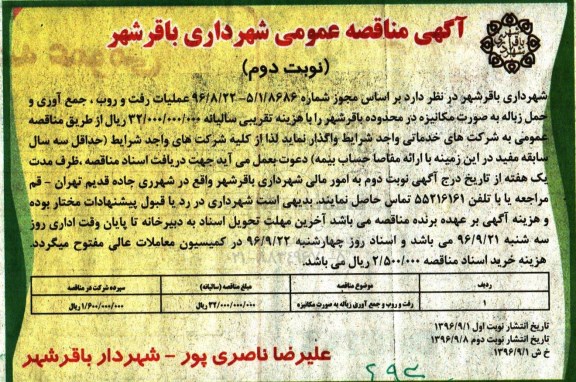 آگهی مناقصه عمومی شهرداری باقرشهر
(نوبت دوم)
شهرداری باقرشهر در نظر دارد بر اساس مجوز شماره ۵/۱/۸۶۸۶-۹۶/۸/۲۲ عملیات رفت و روب ، جمع آوری و
حمل زباله به صورت مکانیزه در محدوده باقرشهر را با هزینه تقریبی سالیانه ۳۲/۰۰۰/۰۰۰/۰۰۰ ریال از طریق مناقصه
عمومی به شرکت های خدماتی واجد شرایط واگذار نماید لذا از کلیه شرکت های واجد شرایط (حداقل سه سال
سابقه مفید در این زمینه با ارائه مفاصا حساب بیمه) دعوت بعمل می آید جهت دریافت اسناد مناقصه ،ظرف مدت
یک هفته از تاریخ درج آگهی نوبت دوم به امور مالی شهرداری باقرشهر واقع در شهرری جاده قدیم تهران - قم
مراجعه یا با تلفن ۵۵۲۱۶۱۶۱ تماس حاصل نمایند. بدیهی است شهرداری در رد یا قبول پیشنهادات مختار بوده
و هزینه آگهی بر عهده برنده مناقصه می باشد آخرین مهلت تحویل اسناد به دبیرخانه تا پایان وقت اداری روز
سه شنبه ۹۶/۹/۲۱ می باشد و اسناد روز چهارشنبه ۹۶/۹/۲۲ در کمیسیون معاملات عالی مفتوح میگردد.
هزینه خرید اسناد مناقصه ۲/۵۰۰/۰۰۰ ریال می باشد.
ردیف موضوع مناقصه مبلغ مناقصه (سالیانه) سپرده شرکت در مناقصه
۱ رفت و روب و جمع آوری زباله به صورت مکانیزه ۳۲/۰۰۰/۰۰۰/۰۰۰ ریال ۱/۶۰۰/۰۰۰/۰۰۰ ریال
تاریخ انتشار نوبت اول ۱۳۹۶/۹/۱
تاریخ انتشار نوبت دوم ۱۳۹۶/۹/۸
خ ش ۱۳۹۶/۹/۱
علیرضا ناصری پور - شهردار باقرشهر